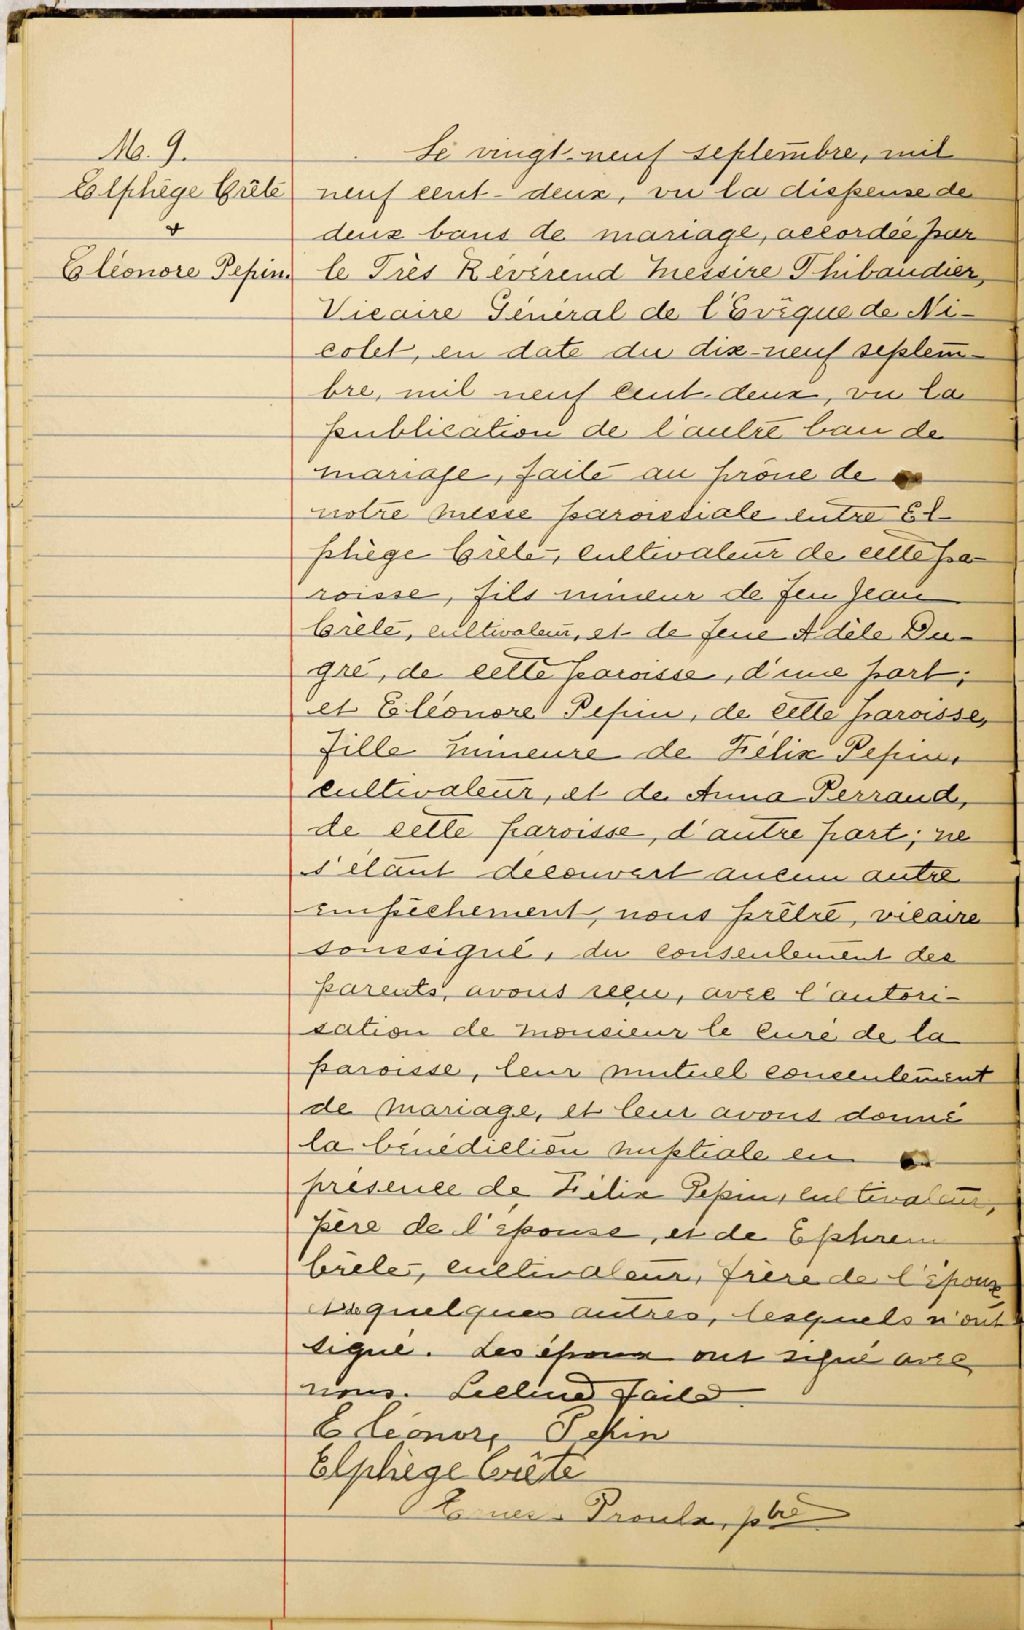 M. 9.
Elphège Crête
&
Eléonore Pepin.
Le vingt-neuf septembre, mil
neuf cent-deux, vu la dispense de
deux bans de mariage, accordée par
le Très Révérend Messire Thibaudier,
Vicaire Général de l'Evêque de Ni-
colet, en date du dix-neuf septem-
bre, mil neuf cent-deux, vu la
publication de l'autre ban de
mariage, faite au prône de
notre messe paroissiale entre El-
phège Crête, cultivateur de cette pa-
roisse, fils mineur de feu Jean
Crête, cultivateur, et de feue Adèle Du-
gré, de cette paroisse, d'une part;
et Eléonore Pepin, de cette paroisse,
fille mineure de Félix Pepin,
cultivateur, et de Anna Perraud,
de cette paroisse, d'autre part; ne
s'étant découvert aucun autre
empêchement, nous prêtre, vicaire
soussigné, du consentement des
parents, avons reçu, avec l'autori-
sation de monsieur le curé de la
paroisse, leur mutuel consentement
de mariage, et leur avons donné
la bénédiction nuptiale en
présence de Félix Pepin, cultivateur,
père de l'épouse, et de Ephrem
Crête, cultivateur, frère de l'époux,
et de quelques autres, lesquels n'ont
signé. Les époux ont signé avec
nous. Lecture faite.
Eléonore Pepin
Elphège Crête
Proulx, ptre